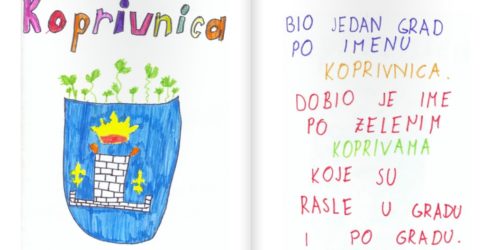 Koprivnica
BIO JEDAN GRAD
PO IMENU
KOPRIVNICA.
DOBIO JE IME
PO ZELENIM
KOPRIVAMA
KOJE SU
RASLE U GRADU
I PO GRADU.